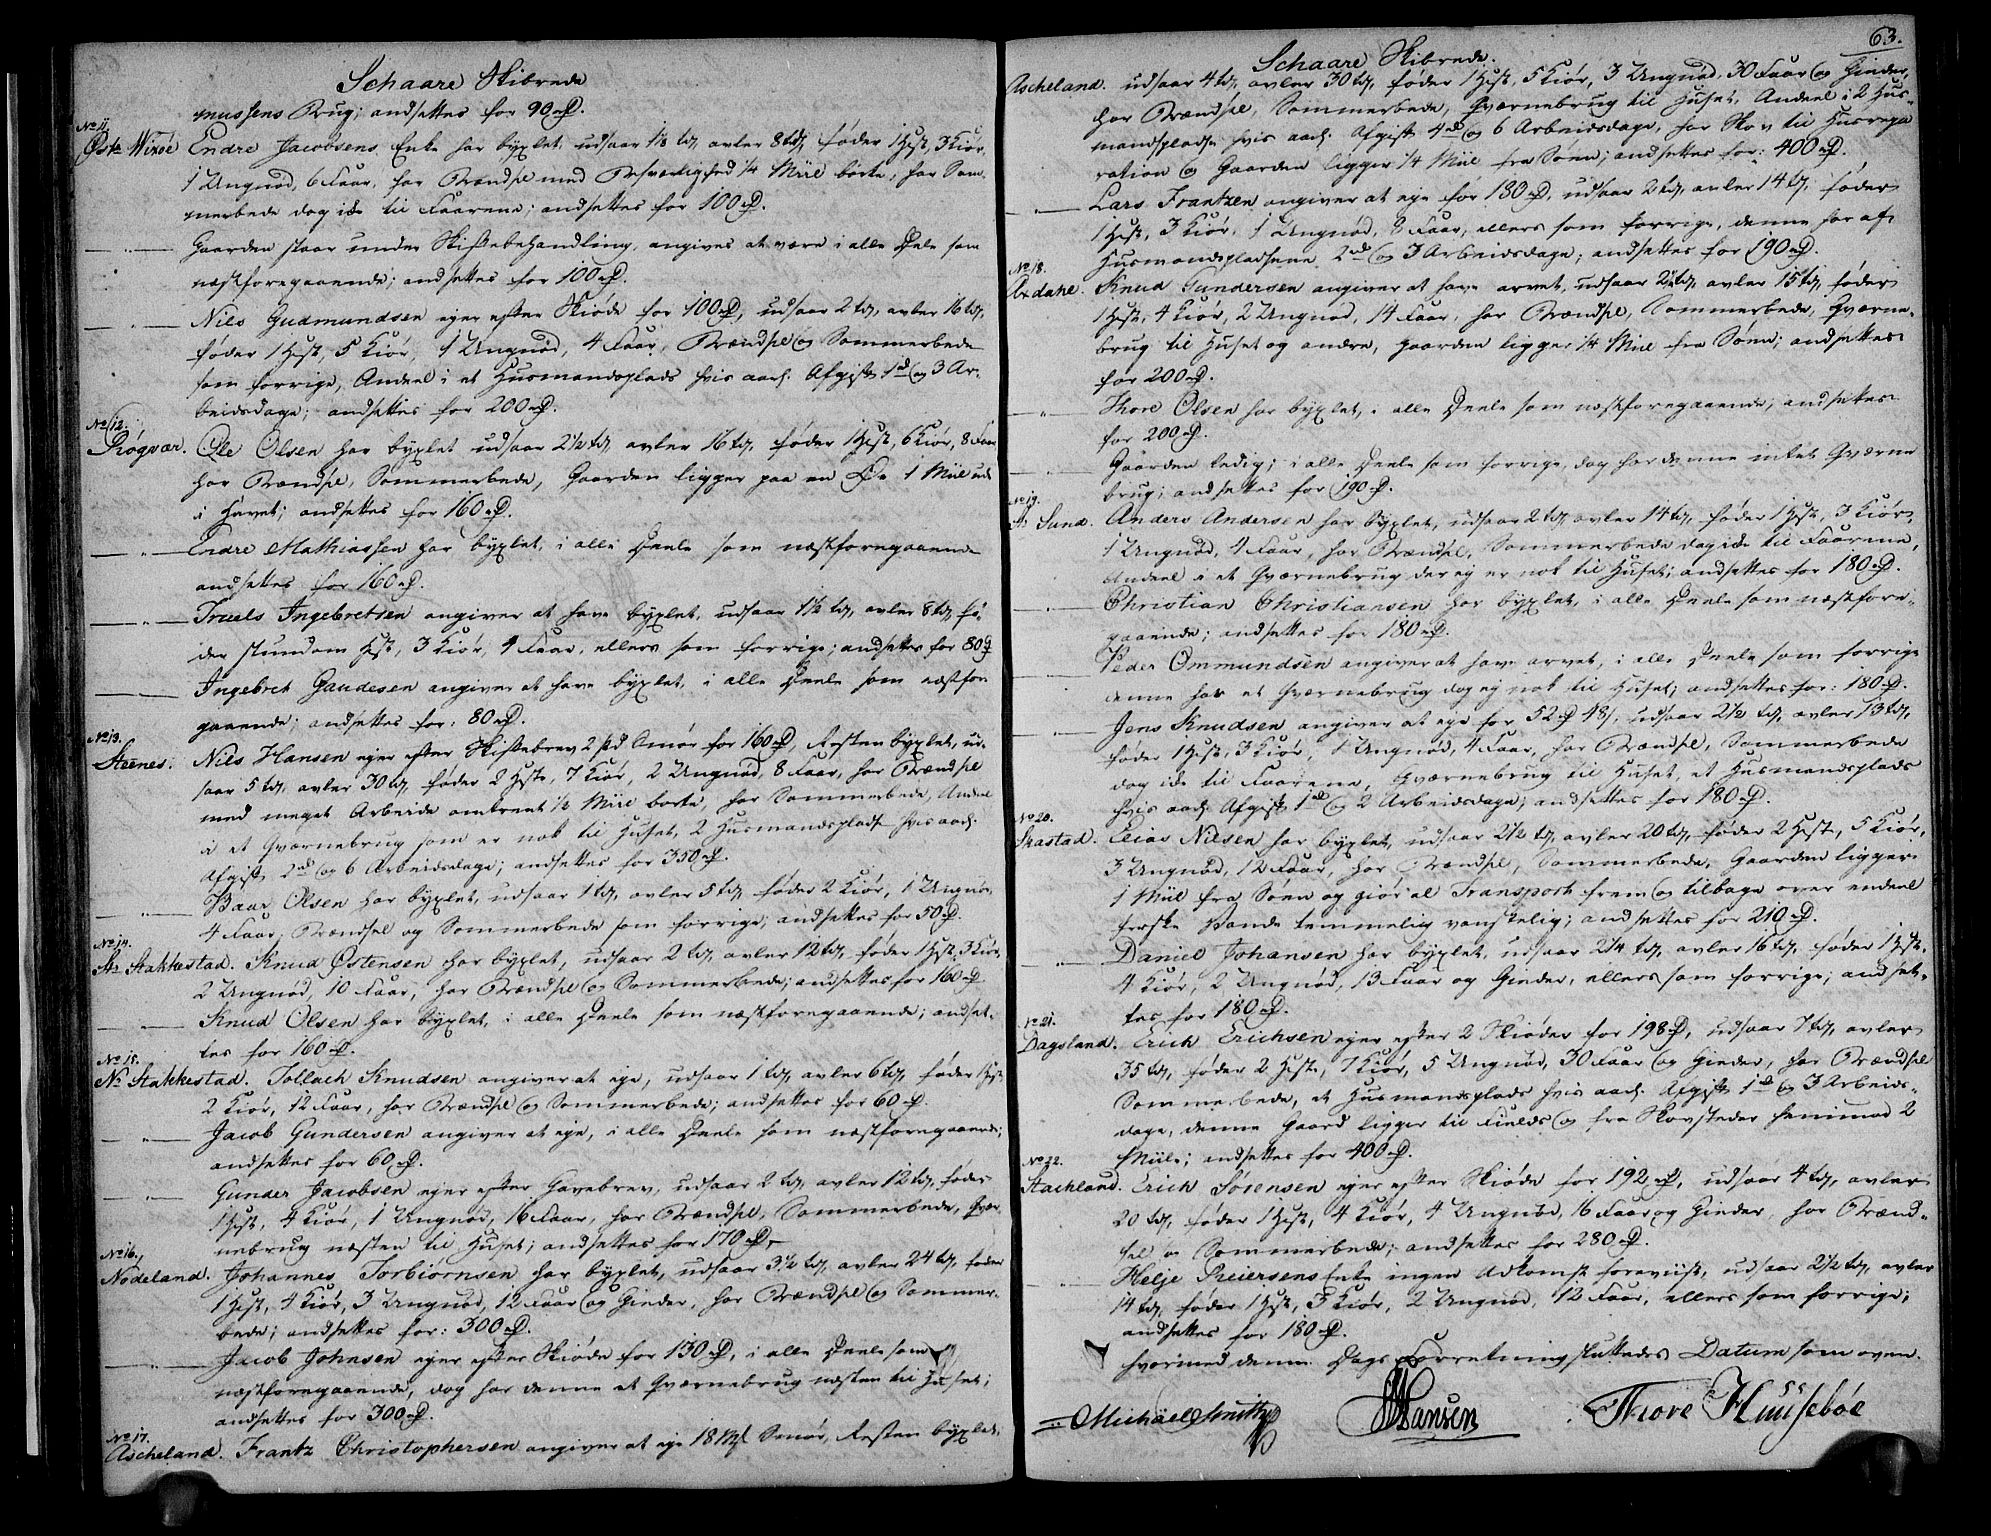 Schaare Skibrede
mussens Brug; ansettes for 90 rD.
No 11.
Østr Wixøe Endre Jacobsens Enke har bøxlet, udsaar 1½ td, avler 8 td, føder 1 Hest, 3 Kiør,
1 Ungnød, 6 Faar, har Brændsel med Besværlighed ¼ Miil borte, har Som-
merbede dog ikke til Faarene; ansettes for 100 rD.
— " — Gaarden staar under Skiftebehandling, angives at være i alle Deele som
næstforegaaende; ansettes for 100 rD.
— " — Niels Gudmundsen ejer efter Skiøde for 100 rD, udsaar 2 td, avler 16 td,
føder 1 Hest, 5 Kiør, 1 Ungnød, 4 Faar, Brændsel og Sommerbede
som forrige, Andeel i et Husmandsplads hvis aarl. Afgift 1 rd og 3 Ar-
beidsdage; ansettes for 200 rD.
No 12.
Røgvær. Ole Olsen har bøxlet udsaar 2½ td, avler 16 td, føder 1 Hest, 6 Kiør, 8 Faar
har Brændsel, Sommerbede, Gaarden ligger paa en Øe 1 Miil ud
i Havet; ansettes for 160 rD.
— " — Endre Mathiassen har bøxlet, i alle Deele som næstforegaaende
ansettes for 160 rD.
— " — Truels Ingebretsen angiver at have bøxlet, udsaar 1½ td, avler 8 td, fø-
der stundom Hest, 3 Kiør, 4 Faar, ellers som forrige; ansettes for 80 rD
— " — Ingebret Gaudesen angiver at have bøxlet, i alle Deele som næstfore
gaaende; ansettes for: 80 rD.
No 13.
Steenes. Niels Hansen ejer efter Skiftebrev 2 pd Smør for 160 rD, Resten bøxlet, ud-
saar 5 td, avler 30 td, føder 2 Heste, 7 Kiør, 2 Ungnød, 8 Faar, har Brændsel
med meget Arbeide omtrent ½ Miil borte, har Sommerbede, Andeel
i et Qværnebrug som er nok til Huset, 2 Husmandspladse hvis aarl.
Afgift 2 rd og 6 Arbeidsdage; ansettes for 350 rD.
— " — Baar Olsen har bøxlet, udsaar 1 td, avler 5 td, føder 2 Kiør, 1 Ungnød,
4 Faar, Brændsel og Sommerbede som forrige; ansettes for 50 rD.
No 14.
Sr Stakkestad. Knud Østensen har bøxlet, udsaar 2 td, avler 12 td, føder 1 Hest, 3 Kiør,
2 Ungnød, 10 Faar, har Brændsel og Sommerbede; ansettes for 160 rD
— " — Knud Olsen har bøxlet, i alle Deele som næstforegaaende; anset-
tes for 160 rD.
No 15.
Nr Stakkestad. Tollach Knudsen angiver at eje, udsaar 1 td, avler 6 td, føder 1 Hest
2 Kiør, 12 Faar, har Brændsel og Sommerbede; ansettes for 60 rD.
— " — Jacob Gundersen angiver at eje, i alle Deele som næstforegaaende;
ansettes for 60 rD.
— " — Gunder Jacobsen ejer efter Gavebrev, udsaar 2 td, avler 12 td, føder
1 Hest, 4 Kiør, 1 Ungnød, 16 Faar, har Brændsel, Sommerbede, Qvær-
nebrug næsten til Huset; ansettes for 170 rD.
No 16.
Nodeland. Johannes Torbiørnsen har bøxlet, udsaar 3½ td, avler 24 td, føder
1 Hest, 4 Kiør, 3 Ungnød, 12 Faar og Gieder, har Brændsel og Sommer-
bede; ansettes for: 300 rD.
— " — Jacob Johnsen ejer efter Skiøde for 130 rD, i alle Deele som
næstforegaaende, dog har denne et Qværnebrug næsten til Huset;
ansettes for 300 rD.
No 17.
Ascheland. Frantz Christophersen angiver at eje 18 Mk Smør, Resten bøxlet,
63.
Schaare Skibrede.
Ascheland. udsaar 4 td, avler 30 td, føder 1 Hest, 5 Kiør, 3 Ungnød, 30 Faar og Gieder,
har Brændsel, Sommerbede, Qværnebrug til Huset, Andeel i 2 Hus-
mandspladse hvis aarl. Afgift 4 rd og 6 Arbeidsdage, har Skov til Husrepa
ration og Gaarden ligger ¼ Miil fra Søen; ansettes for: 400 rD.
— " — Lars Frantzen angiver at eje for 180 rD, udsaar 2 td, avler 14 td, føder
1 Hest, 3 Kiør, 1 Ungnød, 8 Faar, ellers som forrige, denne har af
Husmandspladsene 2 rd og 3 Arbeidsdage; ansettes for 190 rD.
No 18.
Ardahl. Knud Gundersen angiver at have arvet, udsaar 2½ td, avler 15 td, føder
1 Hest, 4 Kiør, 2 Ungnød, 14 Faar, har Brændsel, Sommerbede, Qværne-
brug til Huset og andre, Gaarden ligger ¼ Miil fra Søen; ansettes
for 200 rD.
" Thore Olsen har bøxlet, i alle Deele som næstforegaaende; ansettes
for 200 rD.
" Gaarden ledig; i alle Deele som forrige, dog har denne intet Qværne
brug; ansettes for 190 rD.
No 19.
Sr Sund. Anders Andersen har bøxlet, udsaar 2 td, avler 14 td, føder 1 Hest, 3 Kiør,
1 Ungnød, 4 Faar, har Brændsel, Sommerbede dog ikke til Faarene,
Andeel i et Qværnebrug der ej er nok til Huset; ansettes for 180 rD.
— " — Christian Christiansen har bøxlet, i alle Deele som næstfore-
gaaende; ansettes for 180 rD.
— " — Peder Ommundsen angiver at have arvet, i alle Deele som forrige
denne har et Qværnebrug dog ej nok til Huset; ansettes for: 180 rD.
— " — Jens Knudsen angiver at eje for 52 rD 48 s, udsaar 2½ td, avler 13 td,
føder 1 Hest, 3 Kiør, 1 Ungnød, 4 Faar, har Brændsel, Sommerbede
dog ikke til Faarene, Qværnebrug til Huset, et Husmandsplads
hvis aarl. Afgift 1 rd og 2 Arbeidsdage; ansettes for 180 rD.
No 20.
Skastad. Elias Nilsen har bøxlet, udsaar 2½ td, avler 20 td, føder 2 Heste, 5 Kiør,
3 Ungnød, 12 Faar, har Brændsel, Sommerbede, Gaarden ligger
1 Miil fra Søen og giør al Transport frem og tilbage over endeel
ferske Vande temmelig vanskelig; ansettes for 210 rD.
— " — Daniel Johansen har bøxlet, udsaar 2¼ td, avler 16 td, føder 1 Hest,
4 Kiør, 2 Ungnød, 13 Faar og Gieder, ellers som forrige; anset-
tes for 180 rD.
No 21.
Dagsland. Erich Erichsen ejer efter 2 Skiøder for 198 rD, udsaar 7 td, avler
35 td, føder 2 Heste, 7 Kiør, 5 Ungnød, 30 Faar og Gieder, har Brændsel
Sommerbede, et Husmandsplads hvis aarl. Afgift 1 rd og 3 Arbeids-
dage, denne Gaard ligger til Fields og fra Skovsteder henimod 2
Miile; ansettes for 400 rD.
No 22.
Stachland. Erich Sørensen ejer efter Skiøde for 192 rD, udsaar 4 td, avler
20 td, føder 1 Hest, 4 Kiør, 4 Ungnød, 16 Faar og Gieder, har Brænd-
sel og Sommerbede; ansettes for 280 rD.
— " — Helje Reiersens Enke ingen Adkomst foreviist, udsaar 2½ td, avler
14 td, føder 1 Hest, 3 Kiør, 2 Ungnød, 12 Faar, ellers som forrige;
ansettes for 180 rD.
hvormed denne Dags Forretning sluttedes Datum som oven.
Michael Smith Hansen Thore Huusebøe